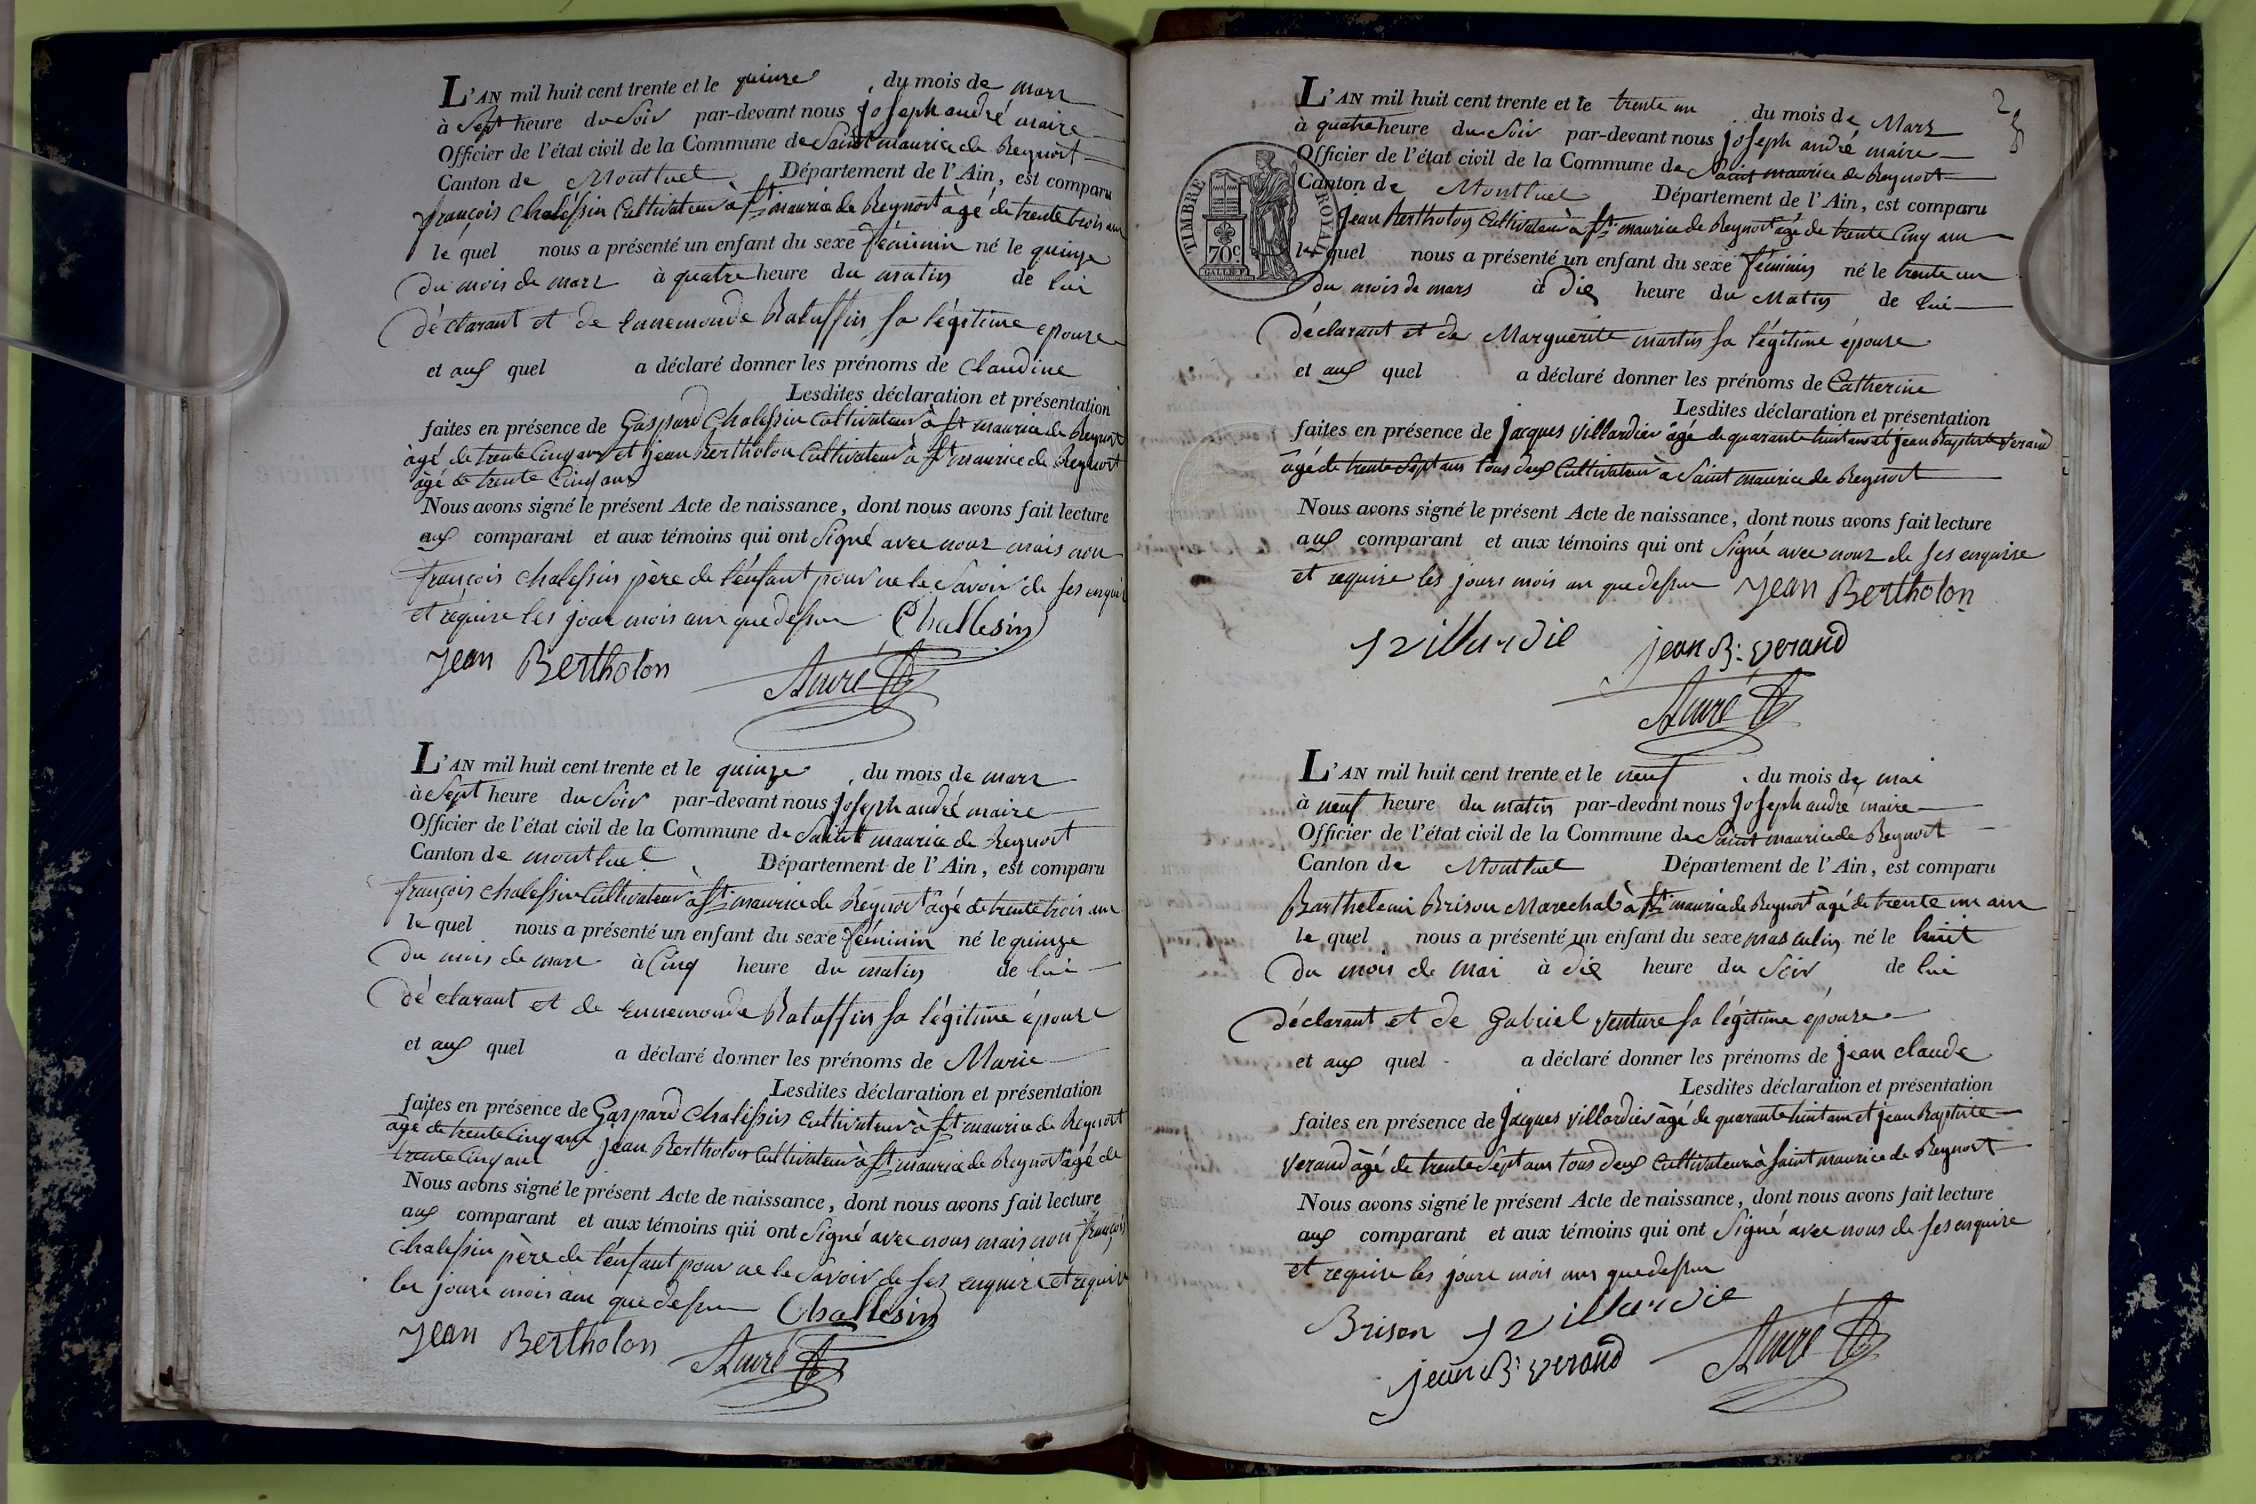 L'AN mil huit cent trente et le quinze du mois de mars
à Sept heure du Soir par-devant nous joseph andré maire
Officier de l'état civil de la Commune de Saint maurice de Beynost
Canton de Montluel Département de l'Ain, est comparu
françois Chalessin Cultivateur à St maurice de Beynost âgé de trente trois ans
le quel nous a présenté un enfant du sexe féminin né le quinze
du mois de mars à quatre heure du matin de lui
déclarant et de Ennemonde Rataffin sa légitime épouse
et aux quel a déclaré donner les prénoms de Claudine
Lesdites déclaration et présentation
faites en présence de Gaspard Chalessin Cultivateur à St maurice de Beynost
âgé de trente Cinq ans et jean Bertholon Cultivateur à St maurice de Beynost
âgé de trente Cinq ans
Nous avons signé le présent Acte de naissance, dont nous avons fait lecture
aux comparant et aux témoins qui ont Signé avec nous mais non
françois chalessin père de l'enfant pour ne le Savoir de ses enquis
et requise les jour mois an que dessus Challesin
jean Bertholon
André
L'AN mil huit cent trente et le quinze du mois de mars
à Sept heure du Soir par-devant nous joseph andré maire
Officier de l'état civil de la Commune de Saint maurice de Beynost
Canton de montluel Département de l'Ain, est comparu
françois chalessin Cultivateur à St maurice de Beynost âgé de trente trois ans
le quel nous a présenté un enfant du sexe féminin né le quinze
du mois de mars à Cinq heure du matin de lui
déclarant et de Ennemonde Rataffin sa légitime épouse
et aux quel a déclaré donner les prénoms de Marie
Lesdites déclaration et présentation
faites en présence de Gaspard Chalessin Cultivateur à St maurice de Beynost
âgé de trente Cinq ans jean Bertholon Cultivateur à St maurice de Beynost âgé de
trente Cinq ans
Nous avons signé le présent Acte de naissance, dont nous avons fait lecture
aux comparant et aux témoins qui ont Signé avec nous mais non françois
chalessin père de l'enfant pour ne le Savoir de ses enquire et requise
les jours mois an que dessus Challesin
jean Bertholon André
2
TIMBRE ROYAL
70c
L'AN mil huit cent trente et le trente un du mois de Mars
à quatre heure du Soir par-devant nous joseph andré maire
Officier de l'état civil de la Commune de Saint maurice de Beynost
Canton de Montluel Département de l'Ain, est comparu
Jean Bertholon Cultivateur à St maurice de Beynost âgé de trente Cinq ans
le quel nous a présenté un enfant du sexe féminin né le trente un
du mois de mars à dix heure du Matin de lui
déclarant et de Marguerite martin sa légitime épouse
et aux quel a déclaré donner les prénoms de Catherine
Lesdites déclaration et présentation
faites en présence de jacques villardier âgé de quarante huit ans et jean Baptiste Verand
âgé de trente Sept ans tous deux Cultivateur à Saint maurice de Beynost
Nous avons signé le présent Acte de naissance, dont nous avons fait lecture
aux comparant et aux témoins qui ont Signé avec nous de ses enquise
et requise les jours mois an que dessus Jean Bertholon
J villardie jean B: verand
André
L'AN mil huit cent trente et le neuf du mois de mai
à neuf heure du matin par-devant nous joseph andré maire
Officier de l'état civil de la Commune de Saint maurice de Beynost
Canton de Montluel Département de l'Ain, est comparu
Barthelemi Brison Marechal à St maurice de Beynost âgé de trente un ans
le quel nous a présenté un enfant du sexe masculin né le huit
du mois de mai à dix heure du Soir de lui
déclarant et de Gabriel venture sa légitime épouse
et aux quel a déclaré donner les prénoms de jean claude
Lesdites déclaration et présentation
faites en présence de jacques villardier âgé de quarante huit ans et jean Baptiste
Verand âgé de trente Sept ans tous deux Cultivateur à Saint maurice de Beynost
Nous avons signé le présent Acte de naissance, dont nous avons fait lecture
aux comparant et aux témoins qui ont Signé avec nous de ses enquire
et requise les jours mois ans que dessus
Brison J villardie
jean B: verand André